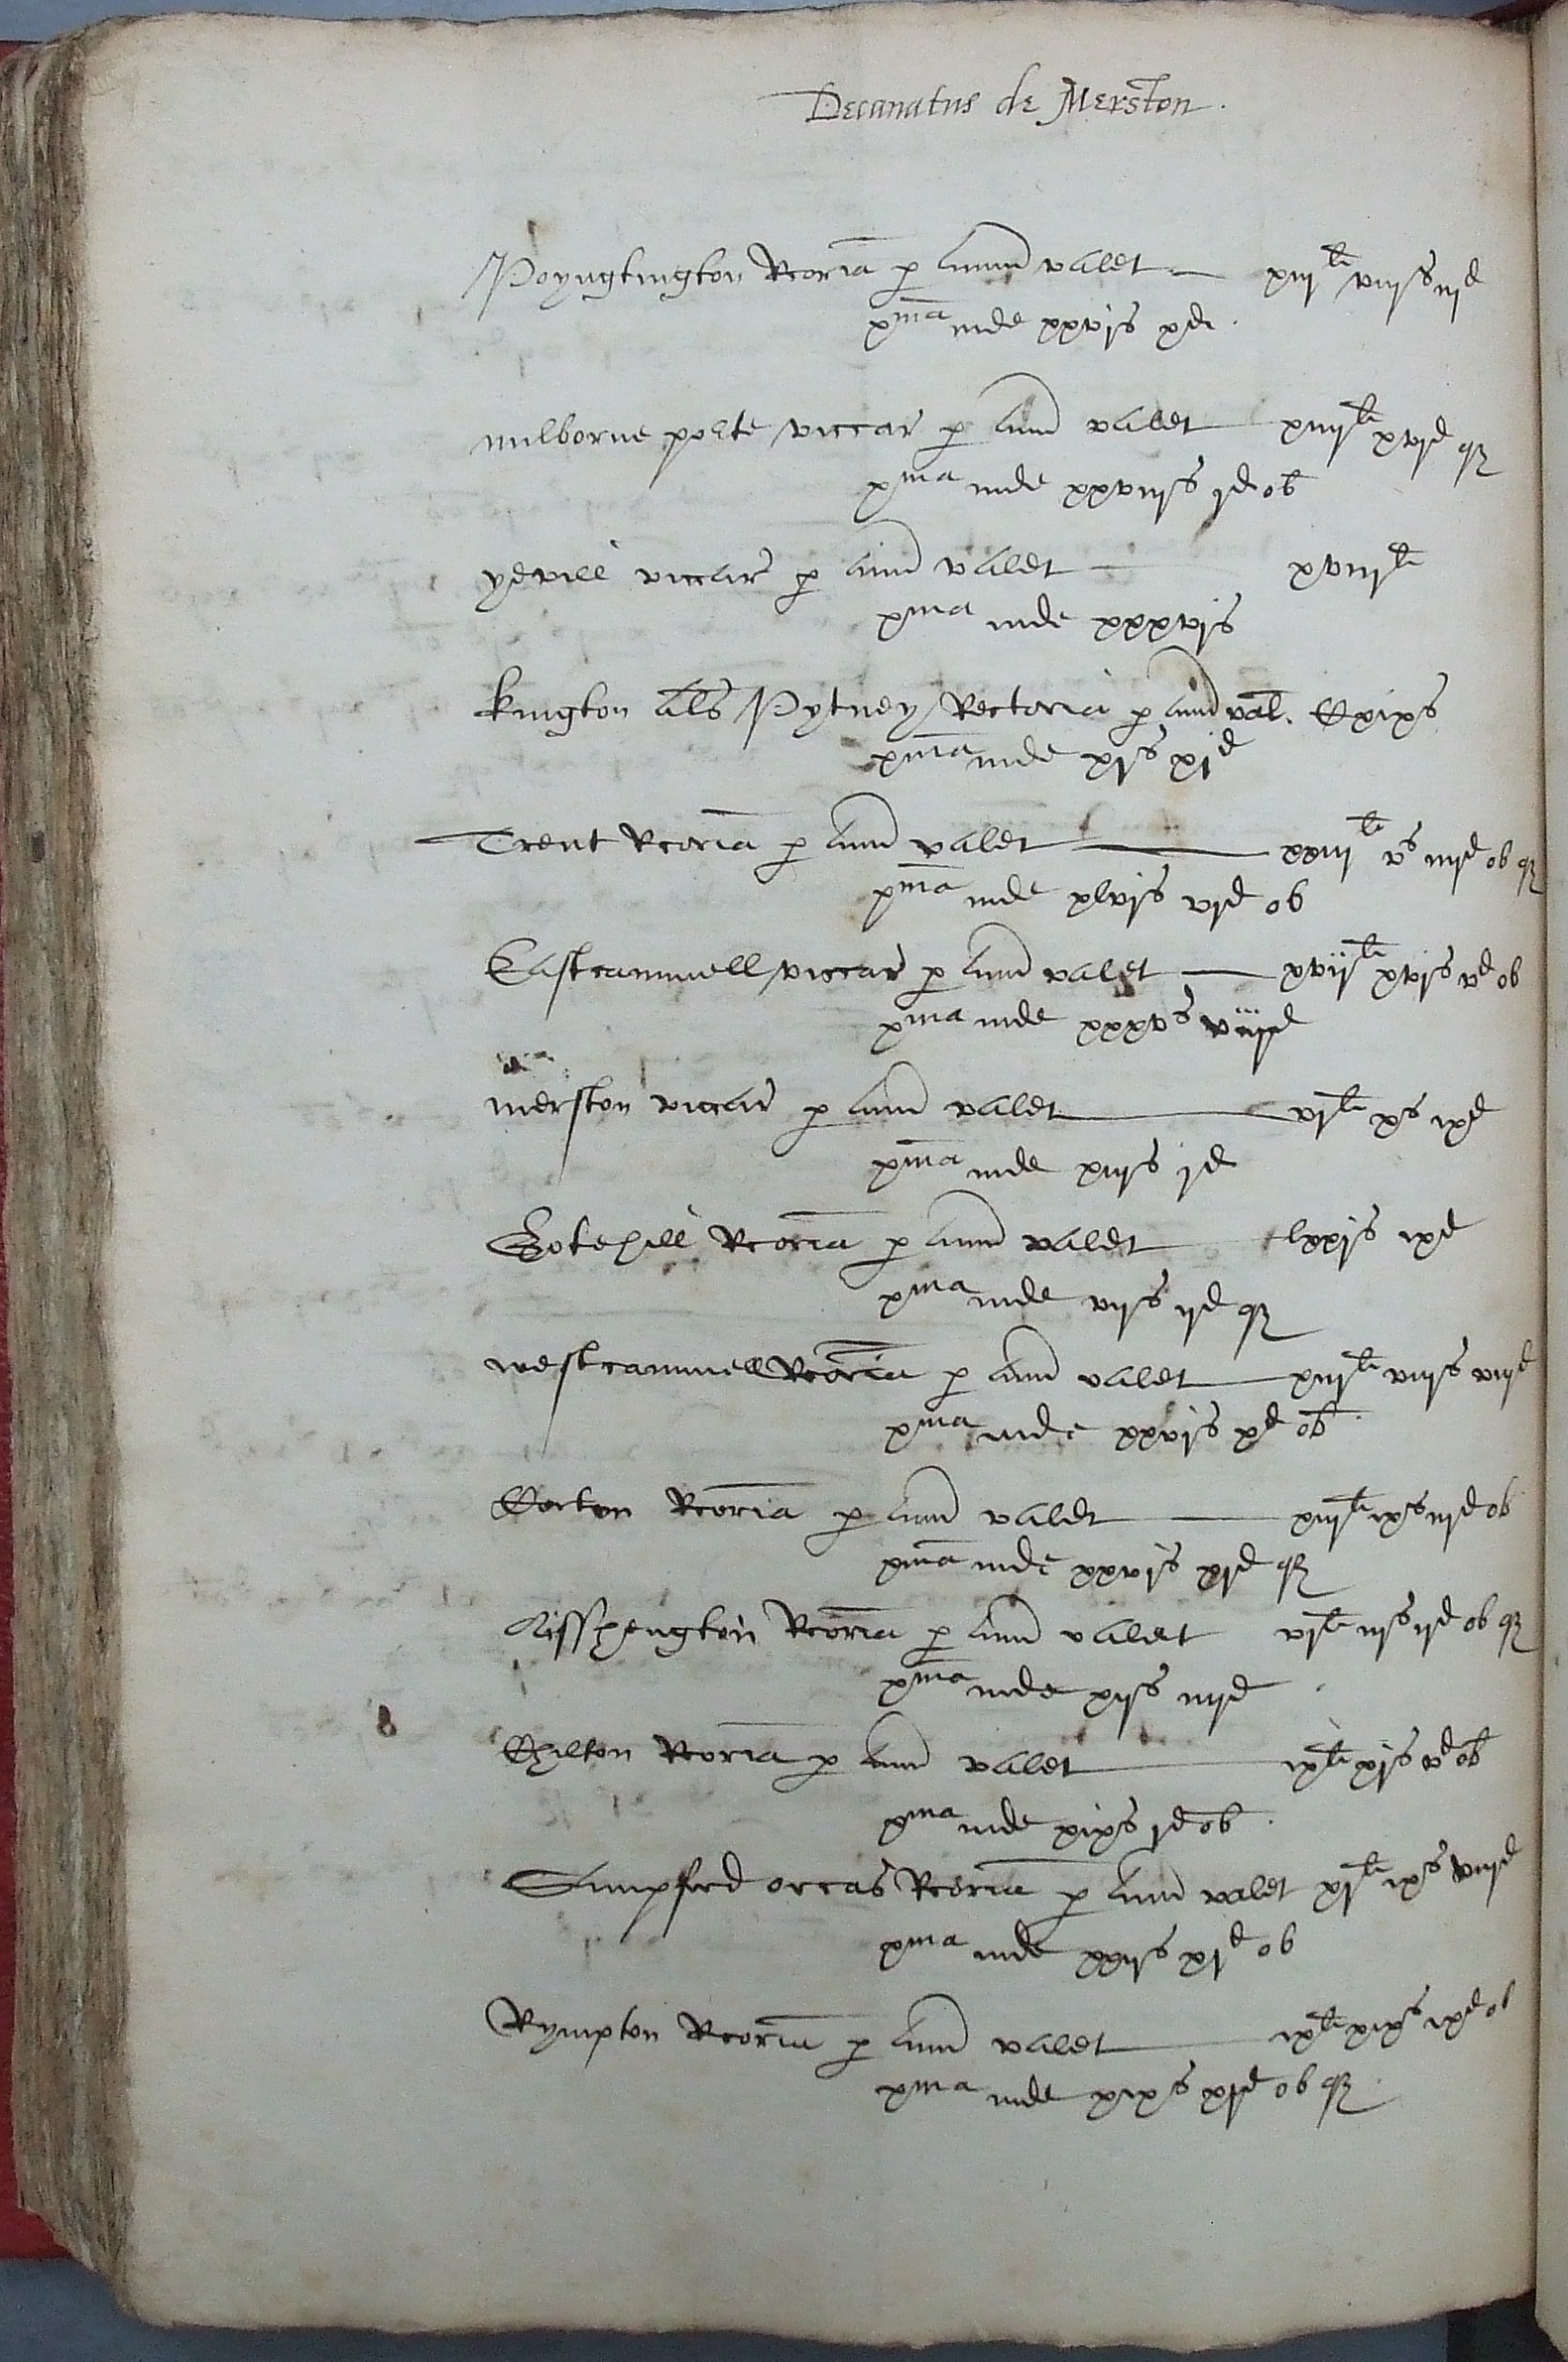 Decanatus de Merston.
Poyngtington Rcoria p Annu valet — xiijli viijs iijd
xma inde xxvjs xd.
milborne porte viccar p Annu valet xiiijli xvjd qz
xma inde xxviijs jd ob
yevill viccar p Annu valet — xviijli
xma inde xxxvjs
kington als Pytney Rectoria p Annu val. Cxixs
xma inde xjs xjd
Trent Rcoria p Annu valet — xxiijli vs iiijd ob qz
xma inde xlvjs vjd ob
Eastcammell viccar p Annu valet — xvijli xvjs vd ob
xma inde xxxvs viijd
merston viccar p Annu valet — vjli xs ixd
xma inde xiijs jd
Gotehill Rcoria p Annu valet lxxjs ixd
xma inde vijs ijd qz
westcammell Rcoria p Annu valet — xiijli viijs viijd
xma inde xxvjs xd ob.
Corton Rcoria p Annu valet — xiijli ixs iijd ob
xma inde xxvjs xjd qz
Aisshengton Rcoria p Annu valet vjli iijs ijd ob qz
xma inde xijs iiijd
Chilton Rcoria p Annu valet — ixli xjs vd ob
xma inde xixs jd ob.
Sampford orcas Rcoria p Annu valet xjli ixs viijd
xma inde xxijs xjd ob
Rympton Rcoria p Annu valet — ixli xixs ixd ob
xma inde xixs xjd ob qz.